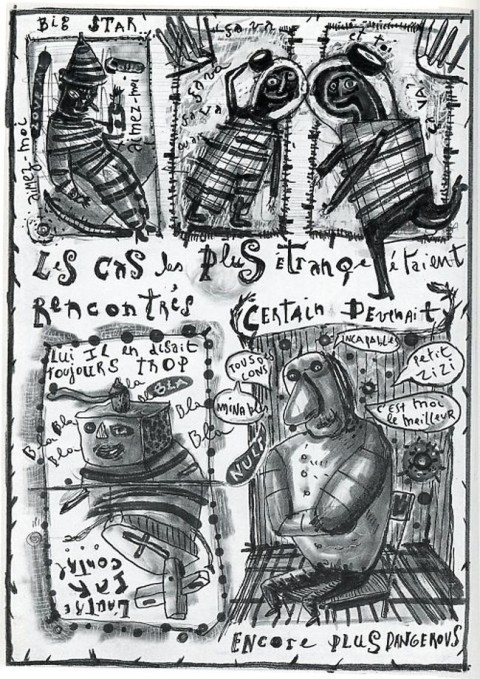 BiG STAR
aimez-moi
aimez-moi
ça va
ça va
ça va
ouais
et toi
ça va?
LES CAS les PLUS étrange étaient
Rencontrés
CERTAIN DEVENAIT
Lui IL en disait
toujours trop
Bla
BLA
Bla
Bla
Bla Bla
Bla
L'autre
PAR
contre
TOUS DES
CONS
MiNABLES
NULS
INCAPABLES
Petit
ZiZi
C'est moi
le meilleur
ENCORE PLUS DANGEROUS